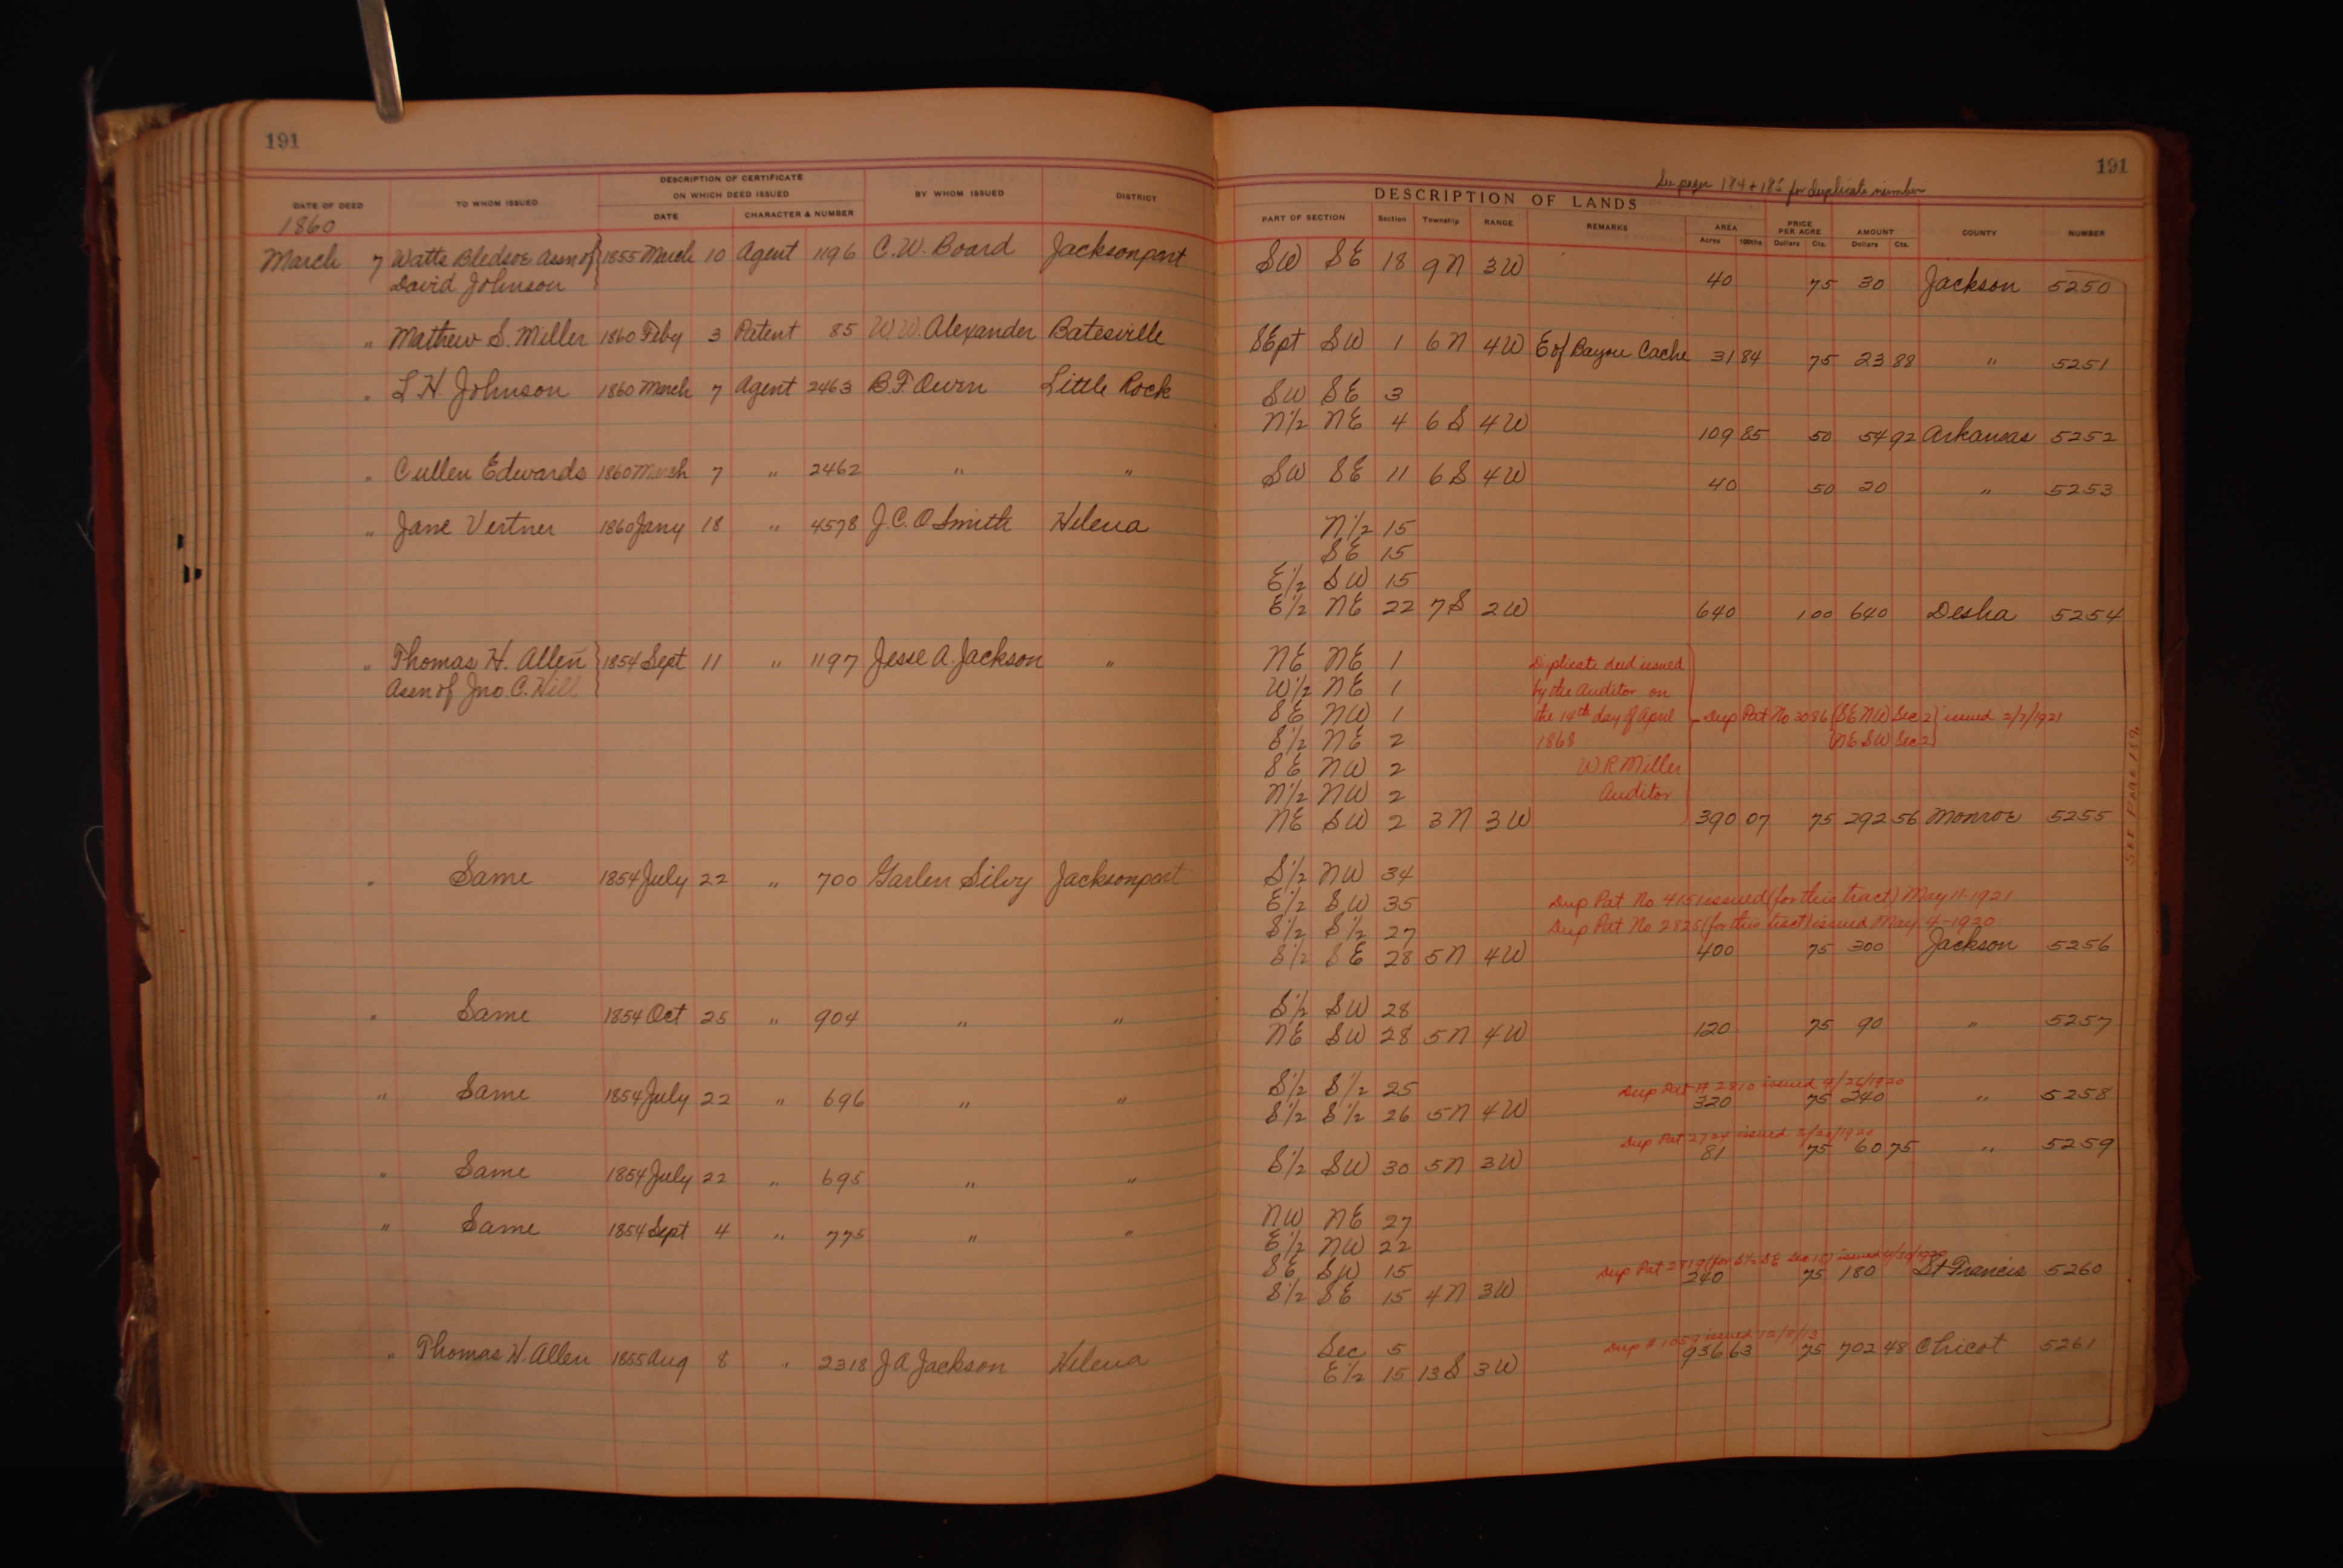 191
191
See page 184 + 185 for duplicate number
DESCRIPTION OF CERTIFICATE
ON WHICH DEED ISSUED
DATE OF DEED TO WHOM ISSUED DATE CHARACTER & NUMBER BY WHOM ISSUED DISTRICT
DESCRIPTION OF LANDS
PART OF SECTION Section Township RANGE REMARKS AREA PRICE PER ACRE AMOUNT COUNTY NUMBER
Acres 100ths Dollars Cts. Dollars Cts.
1860
March 7 Watts Bledsoe Assn of 1855 March 10 Agent 1196 C. W. Board Jacksonport SW SE 18 9N 3W 40 75 30 Jackson 5250
David Johnson
" Mathew S. Miller 1860 Feby 3 Patent 85 W. W. Alexander Batesville SE pt SW 1 6N 4W E of Bayou Cache 31 84 75 23 88 " 5251
" L H. Johnson 1860 March 7 Agent 2463 B. F. Owen Little Rock SW SE 3
N 1/2 NE 4 6S 4W 109 85 50 54 92 Arkansas 5252
" Cullen Edwards 1860 March 7 " 2462 " " SW SE 11 6S 4W 40 50 20 " 5253
" Jane Vertner 1860 Jany 18 " 4578 J. C. O Smith Helena N 1/2 15
SE 15
E 1/2 SW 15
E 1/2 NE 22 7S 2W 640 1 00 640 Desha 5254
" Thomas H. Allen 1854 Sept 11 " 1197 Jesse A. Jackson " NE NE 1 Duplicate deed issued
Assn of Jno. C. Hill W 1/2 NE 1 by the Auditor on
SE NW 1 the 14th day of April Dup Pat No 3086 (SE NW Sec 2) issued 2/7/1921
S 1/2 NE 2 1868 (NE SW Sec 2)
SE NW 2 W R Miller
N 1/2 NW 2 Auditor
NE SW 2 3N 3W 390 07 75 292 56 Monroe 5255
SEE PAGE
" Same 1854 July 22 " 700 Garlen Silvy Jacksonport S 1/2 NW 34
E 1/2 SW 35 Dup Pat No 4151 issued (for this tract) May 11-1921
S 1/2 S 1/2 27 Dup Pat No 2825 (for this tract) issued May 4-1920
S 1/2 SE 28 5N 4W 400 75 300 Jackson 5256
" Same 1854 Oct 25 " 904 " " S 1/2 SW 28
NE SW 28 5N 4W 120 75 90 " 5257
" Same 1854 July 22 " 696 " " S 1/2 S 1/2 25 Dup Pat # 2810 issued 4/26/1920
S 1/2 S 1/2 26 5N 4W 320 75 240 " 5258
Dup Pat issued
" Same 1854 July 22 " 695 " " S 1/2 SW 30 5N 3W 81 75 60 75 " 5259
" Same 1854 Sept 4 " 775 " " NW NE 27
E 1/2 NW 22
SE SW 15 Dup Pat 2819 (for S 1/2 SE Sec 15) issued 4/30/1920
S 1/2 SE 15 4N 3W 240 75 180 St Francis 5260
" Thomas H. Allen 1855 Aug 8 " 2318 J A Jackson Helena Sec 5 Dup # 1059 issued 12/8/13
E 1/2 15 13S 3W 936 63 75 702 48 Chicot 5261